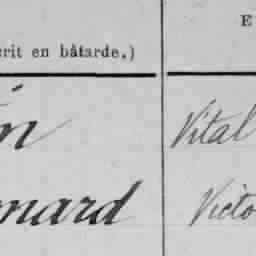 E
crit en bâtarde.)
in Vital
nard Victo